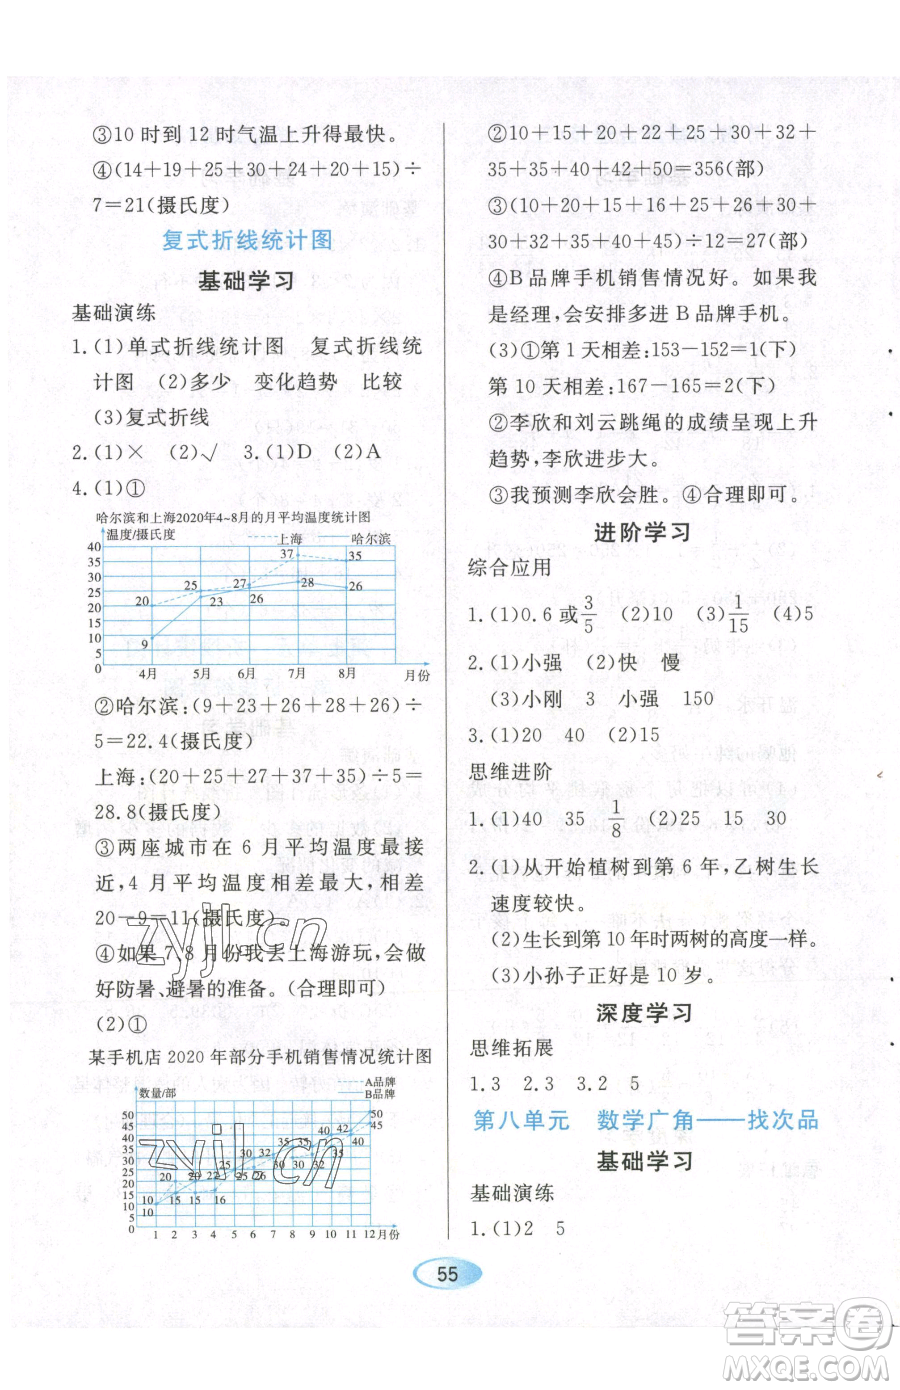 ③10 时到 12 时气温上升得最快。
④(14＋19＋25＋30＋24＋20＋15)÷
7＝21(摄氏度)
复式折线统计图
基础学习
基础演练
1.(1)单式折线统计图 复式折线统
计图 (2)多少 变化趋势 比较
(3)复式折线
2.(1)× (2)√ 3.(1)D (2)A
4.(1)①
哈尔滨和上海2020年4~8月的月平均温度统计图
温度/摄氏度 上海 哈尔滨
40
35
30
25
20
15
10
5
0
20 25 27 37 35
9 23 26 28 26
4月 5月 6月 7月 8月 月份
②哈尔滨：(9＋23＋26＋28＋26)÷
5＝22.4(摄氏度)
上海：(20＋25＋27＋37＋35)÷5＝
28.8(摄氏度)
③两座城市在 6 月平均温度最接
近，4 月平均温度相差最大，相差
20－9＝11(摄氏度)
④如果 7、8 月份我去上海游玩，会做
好防暑、避暑的准备。(合理即可)
(2)①
某手机店 2020 年部分手机销售情况统计图
数量/部 A品牌
B品牌
50
45
40
35
30
25
20
15
10
5
0
1 2 3 4 5 6 7 8 9 10 11 12 月份
②10＋15＋20＋22＋25＋30＋32＋
35＋35＋40＋42＋50＝356(部)
③(10＋20＋15＋16＋25＋26＋30＋
30＋32＋35＋40＋45)÷12＝27(部)
④B 品牌手机销售情况好。如果我
是经理，会安排多进 B 品牌手机。
(3)①第 1 天相差：153－152＝1(下)
第 10 天相差：167－165＝2(下)
②李欣和刘云跳绳的成绩呈现上升
趋势，李欣进步大。
③我预测李欣会胜。④合理即可。
进阶学习
综合应用
1.(1)0.6 或3/5 (2)10 (3)1/15 (4)5
2.(1)小强 (2)快 慢
(3)小刚 3 小强 150
3.(1)20 40 (2)15
思维进阶
1.(1)40 35 1/8 (2)25 15 30
2.(1)从开始植树到第 6 年，乙树生长
速度较快。
(2)生长到第 10 年时两树的高度一样。
(3)小孙子正好是 10 岁。
深度学习
思维拓展
1.3 2.3 3.2 5
第八单元 数学广角——找次品
基础学习
基础演练
1.(1)2 5
55
zyjl.cn
zyjl.cn
答案圈
MXQE.COM